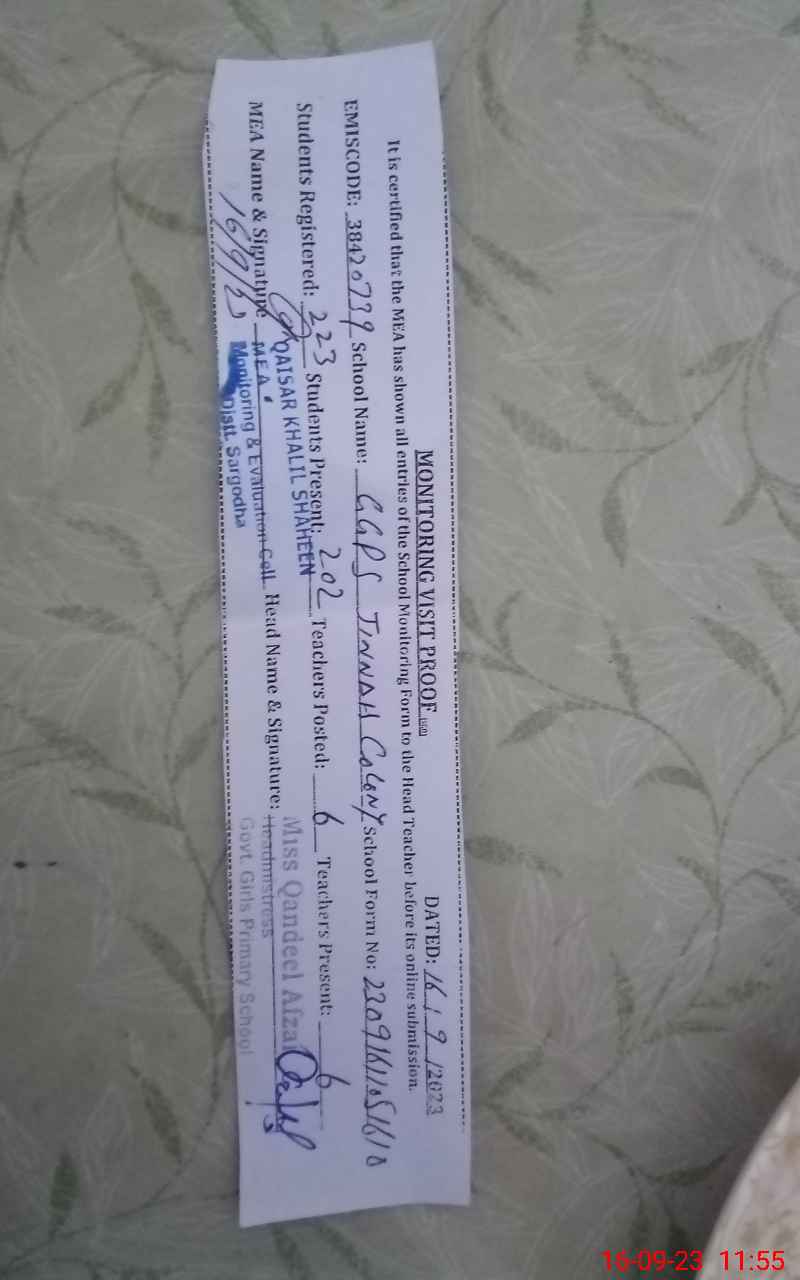 MONITORING VISIT PROOF
DATED: 16/9/2023
It is certified that the MEA has shown all entries of the School Monitoring Form to the Head Teacher before its online submission.
EMISCODE: 38420739 School Name: GGPS JINNAH COLONY School Form No:
Students Registered: 223 Students Present: 202 Teachers Posted: 6 Teachers Present: 6
MEA Name & Signature Head Name & Signature:
QAISAR KHALIL SHAHEEN
MEA
Monitoring & Evaluation Cell
Distt. Sargodha
16/9/23
Miss Qandeel Afzal
Headmistress
Govt. Girls Primary School
16-09-23 11:55